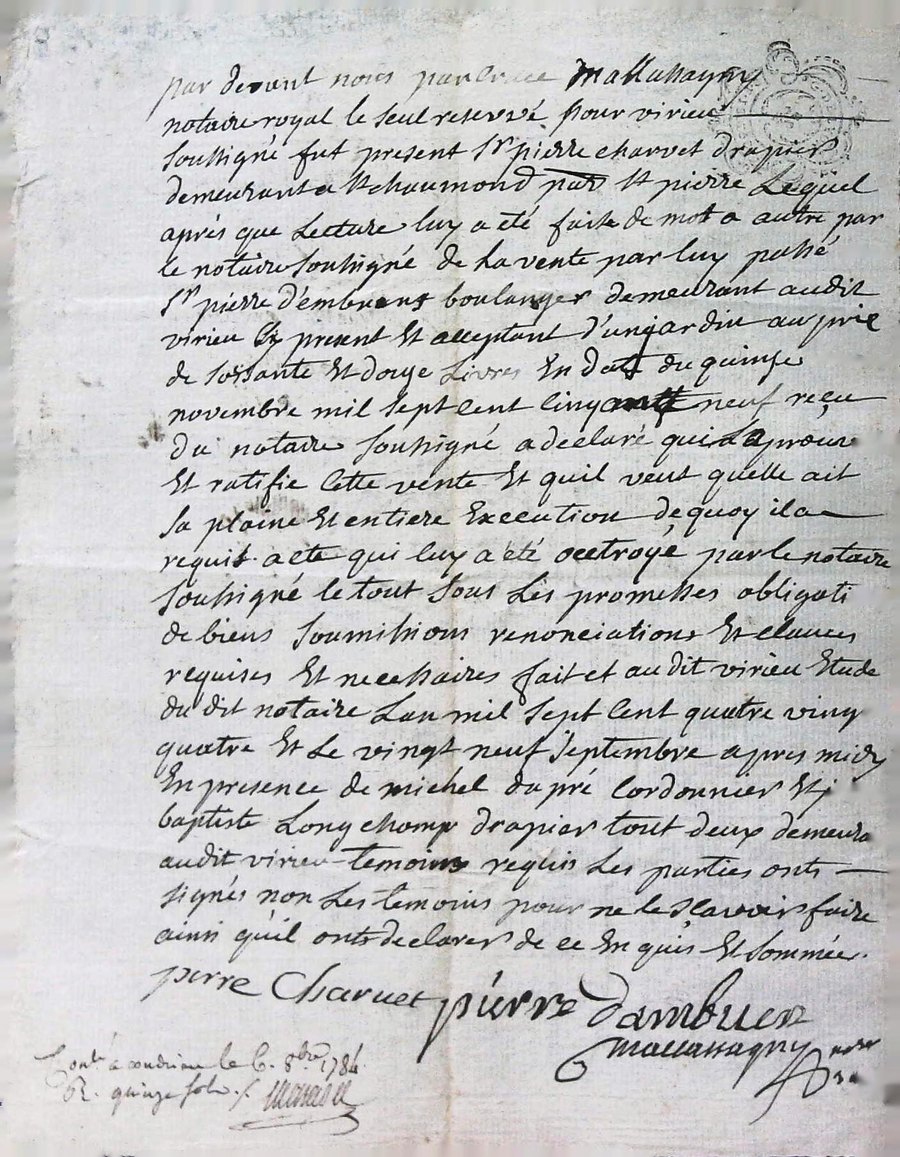 par devant nous parcrice mallassagny
notaire royal le seul reservé pour virieu
soussigné fut present Sr pierre charvet drapier
demeurant a St chaumond par St pierre Lequel
aprés que Lecture luy a été faite de mot a autre par
le notaire soussigné de la vente par luy passé
Sr pierre d'embrens boulanger demeurant audit
virieu Cy present Et acceptant d'un jardin au prie
de soissante Et douze Livres En date du quinze
novembre mil sept Cent Cinquante neuf reçu
du notaire soussigné a declaré qui La prouve
Et ratifie Cette vente Et quil veut quelle ait
sa plaine Et entiere Execution dequoy il a
requis acte qui luy a été occtroyé par le notaire
soussigné le tout sous Les promesses obligati
de biens soumissions renonciations Et clauces
requises Et necessaires fait et audit virieu Etude
du dit notaire Lan mil sept Cent quatre ving
quatre Et Le vingt neuf septembre apres midy
En presence de michel dupré Cordonnier Et j
baptiste Longchamp drapier tout deux demeura
audit virieu temoins requis Les parties onts
signés non Les temoins pour ne le sçavoir faire
ainsi qu'il onts declarer de ce En quis Et sommée.
pierre Charvet pierre dambuen
mallassagny
Conté a condrieu le 6. 8bre 1784
R. quinze sols